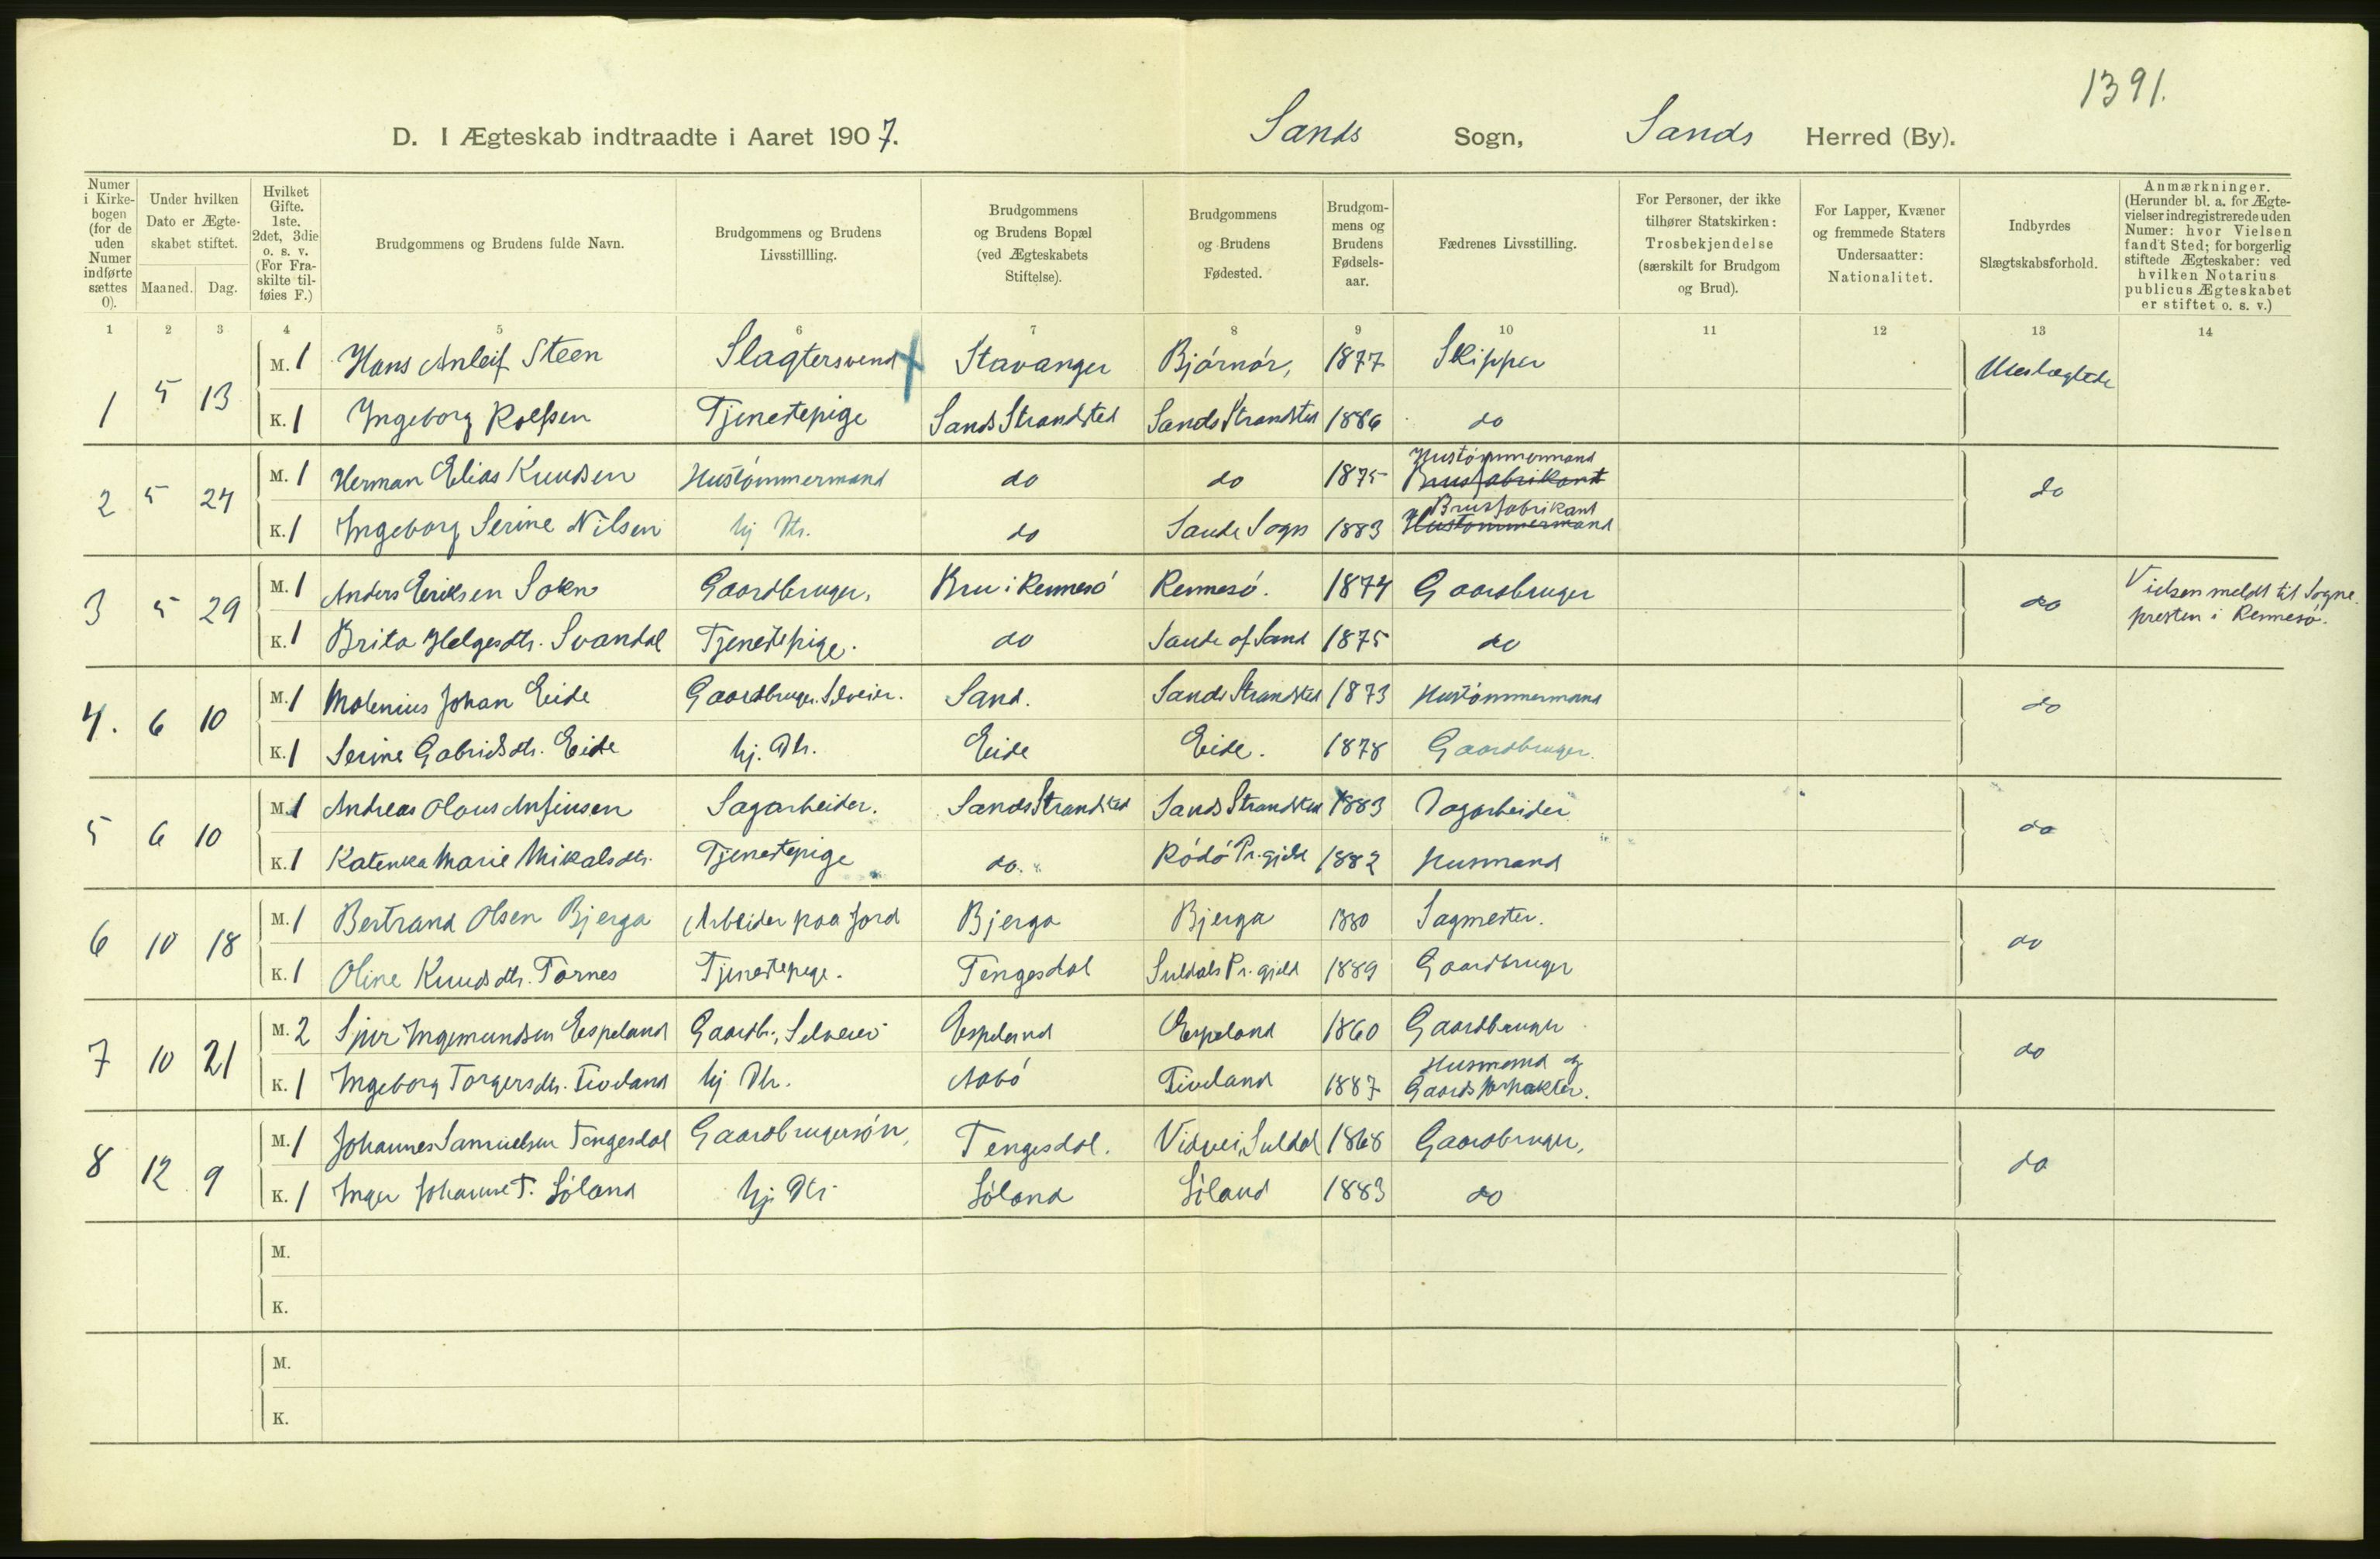 1391.
D. I Ægteskab indtraadte i Aaret 1907. Sands Sogn, Sands Herred (By).
Numer i Kirkebogen (for de uden Numer indførte sættes 0).
Under hvilken Dato er Ægteskabet stiftet.
Maaned. Dag.
Hvilket Gifte. 1ste. 2det, 3die o. s. v. (For Fraskilte tilføies F.)
Brudgommens og Brudens fulde Navn.
Brudgommens og Brudens Livsstillling.
Brudgommens og Brudens Bopæl (ved Ægteskabets Stiftelse).
Brudgommens og Brudens Fødested.
Brudgommens og Brudens Fødselsaar.
Fædrenes Livsstilling.
For Personer, der ikke tilhører Statskirken: Trosbekjendelse (særskilt for Brudgom og Brud).
For Lapper, Kvæner og fremmede Staters Undersaatter: Nationalitet.
Indbyrdes Slægtskabsforhold.
Anmærkninger. (Herunder bl. a. for Ægtevielser indregistrerede uden Numer: hvor Vielsen fandt Sted; for borgerlig stiftede Ægteskaber: ved hvilken Notarius publicus Ægteskabet er stiftet o. s. v.)
1 2 3 4 5 6 7 8 9 10 11 12 13 14
1 5 13 M. 1 Hans Anleif Steen Slagtersvend Stavanger Bjørnør, 1877 Skipper Ubeslægtede
K. 1 Ingeborg Rolfsen Tjenestepige Sands Strandsted Sands Strandsted 1886 do
2 5 24 M. 1 Herman Elias Knudsen Hustømmermand do do 1875 Hustømmermand Brusfabrikant do
K. 1 Ingeborg Serine Nilsen hj Dtr. do Saude Sogn 1883 Brusfabrikant Hustømmermand
3 5 29 M. 1 Anders Eriksen Sokn Gaardbruger, Bru i Rennesø Rennesø. 1874 Gaardbruger do Vielsen meldt til Sogne-
presten i Rennesø.
K. 1 Brita Helgesdtr. Svandal Tjenestepige. do Saude af Sand 1875 do
4. 6 10 M. 1 Malenius Johan Eide Gaardbruger. Selveier. Sand. Sands Strandsted 1873 Hustømmermand do
K. 1 Serine Gabrielsdtr. Eide hj. Dtr. Eide Eide. 1878 Gaardbruger.
5 6 10 M. 1 Andreas Olaus Anfinsen Sagarbeider. Sands Strandsted Sands Strandsted 1883 Dagarbeider do
K. 1 Katenka Marie Mikalsdtr. Tjenestepige do. Rødø Pr.gjeld 1882 Husmand
6 10 18 M. 1 Bertrand Olsen Bjerga Arbeider paa Jord Bjerga Bjerga 1880 Sagmester. do
K. 1 Oline Knudsdtr. Tornes Tjenestepige. Tengesdal Suldals Pr.gjeld 1889 Gaardbruger
7 10 21 M. 2 Sjur Ingemundsen Espeland Gaardbr., Selveier Espeland Espeland 1860 Gaardbruger do
K. 1 Ingeborg Torgersdtr. Tioeland hj Dtr. Aabø Tioeland 1887 Husmand og Gaardsforpakter.
8 12 9 M. 1 Johannes Samuelsen Tengesdal Gaardbrugersøn, Tengesdal. Vidvei, Suldal 1868 Gaardbruger, do
K. 1 Inger Johanne T. Løland hj. Dtr Løland Løland 1883 do
M.
K.
M.
K.